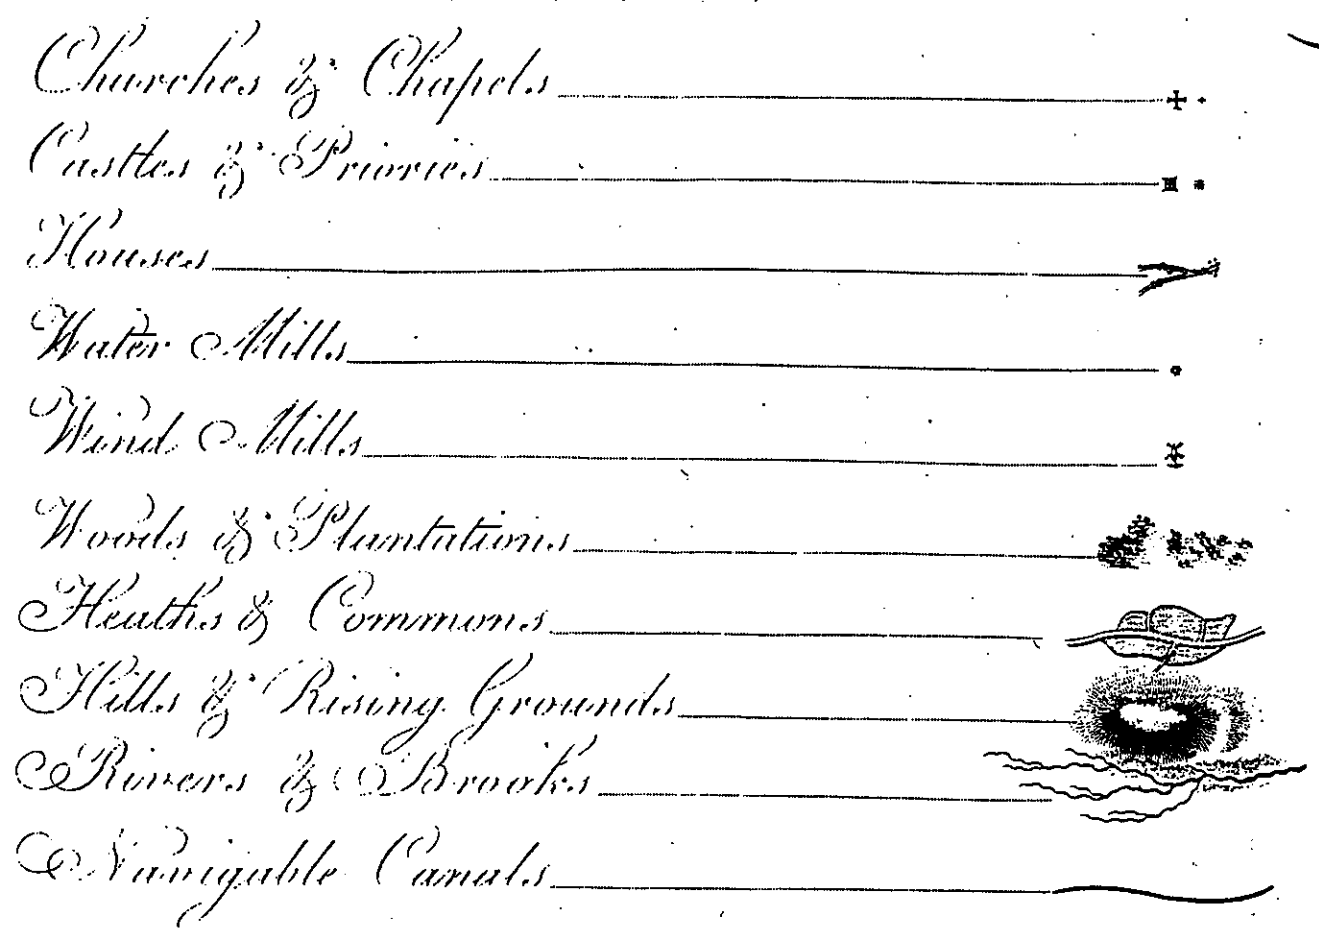 Churches & Chapels
Castles & Priories
Houses
Water Mills
Wind Mills
Woods & Plantations
Heaths & Commons
Hills & Rising Grounds
Rivers & Brooks
Navigable Canals